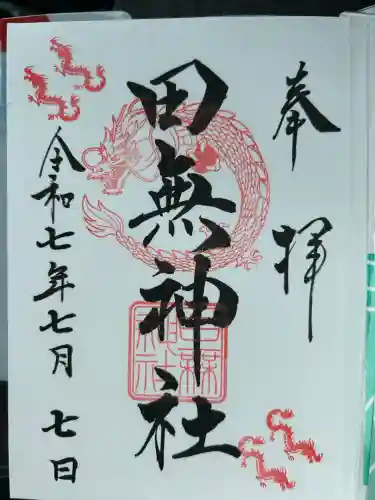 奉拝
田無神社
令和七年七月七日
田無神社